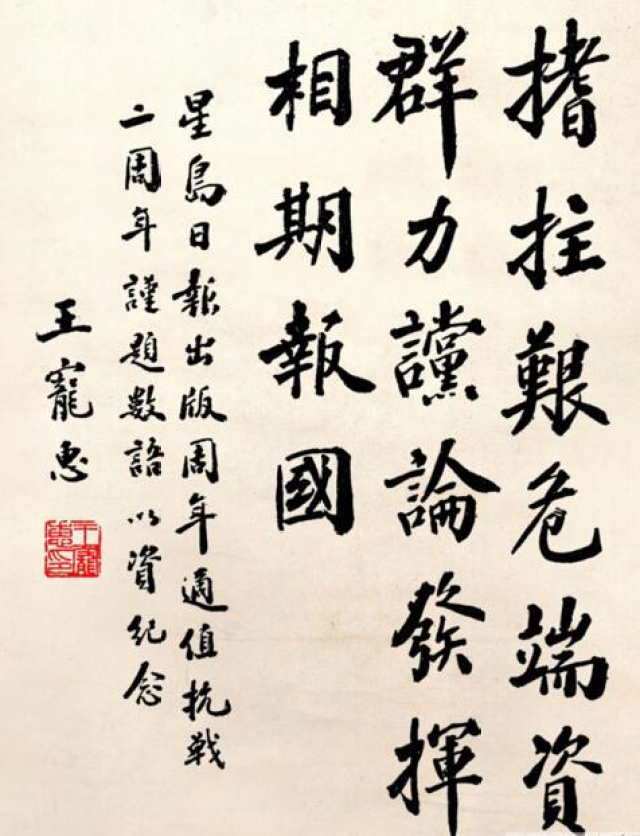 搘拄艱危端資
群力讜論發揮
相期報國
星島日報出版周年適值抗戰
二周年謹題數語以資紀念
王寵惠
王寵惠印